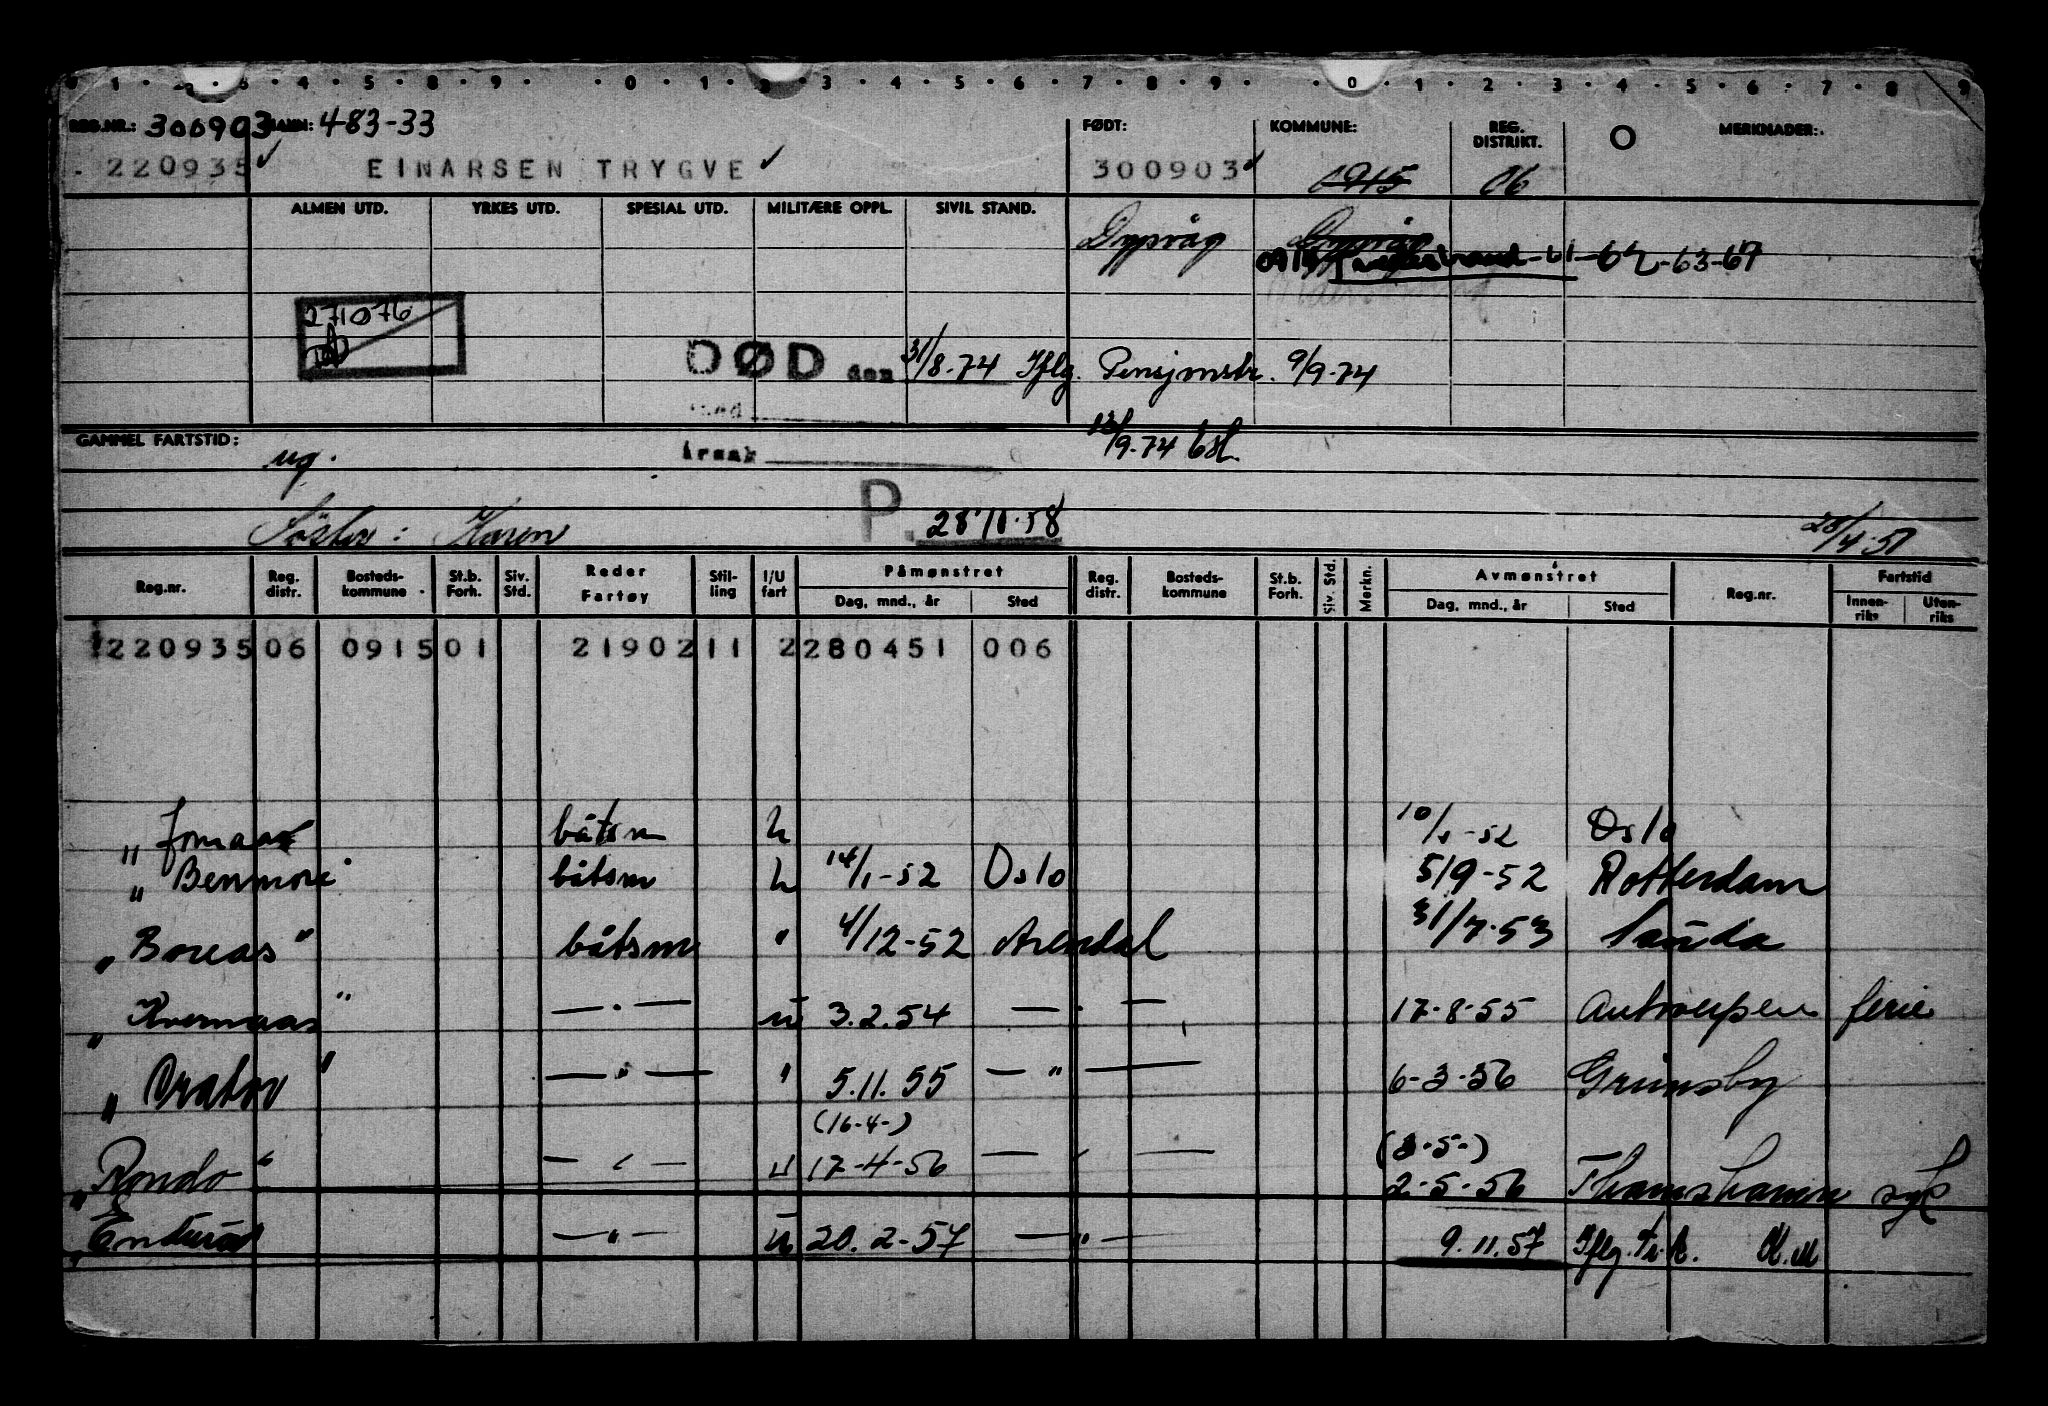 0 1 2 3 4 5 8 9 0 1 2 3 4 5 6 7 8 9 0 1 2 3 4 5 6 7 8 9
REG.NR.: 300903 NAVN: 483-33 FØDT: KOMMUNE: REG. DISTRIKT. O MERKNADER:
220935 ✓ EINARSEN TRYGVE ✓ 300903 ✓ 0915 06
ALMEN UTD. YRKES UTD. SPESIAL UTD. MILITÆRE OPPL. SIVIL STAND. Dypvåg Dypvåg
-61-62-63-67
271076
DØD den 31/8-74 Iflg. Pensjonstr. 9/9-74
ved
GAMMEL FARTSTID: ug. årsak 12/9-74 bsl.
Søster: Karen P. 28/11-58 28/4-51
Reg.nr. Reg. distr. Bosteds-kommune St.b. Forh. Siv. Std. Reder Fartøy Stil-ling I/U fart Påmønstret Dag, mnd., år Sted Reg. distr. Bosteds-kommune St.b. Forh. Siv. Std. Merkn. Avmønstret Dag, mnd., år Sted Reg.nr. Fartstid Innen-riks Uten-riks
220935 06 0915 01 21902 11 2 280451 006
" Jomaas båtsm u 10/1-52 Oslo
" Benmore båtsm u 14/1-52 Oslo 5/9-52 Rotterdam
" Boreas " båtsm " 4/12-52 Arendal 31/7-53 Sauda
" Kvernaas " — " — u 3.2.54 — " — 17-8-55 Antwerpen ferie
" Orator " — " — " 5.11.55 — " — 6-3-56 Grimsby
(16-4-) (3-5-)
" Rondo " — " — u 17-4-56 — " — 2-5-56 Thamshamn syk
" Endurad — " — u 20.2-57 — " — 9.11.57 Iflg. Tr.k. K.M